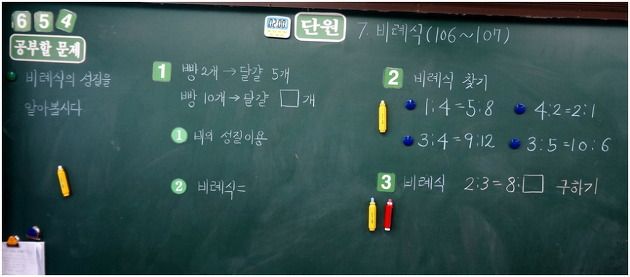 6 5 4
02:00
단원 7. 비례식(106~107)
공부할 문제
비례식의 성질을
알아봅시다
1 빵 2개 → 달걀 5개
빵 10개 → 달걀 □개
1 비의 성질이용
2 비례식=
2 비례식 찾기
1:4=5:8 4:2=2:1
3:4=9:12 3:5=10:6
3 비례식 2:3=8:□ 구하기